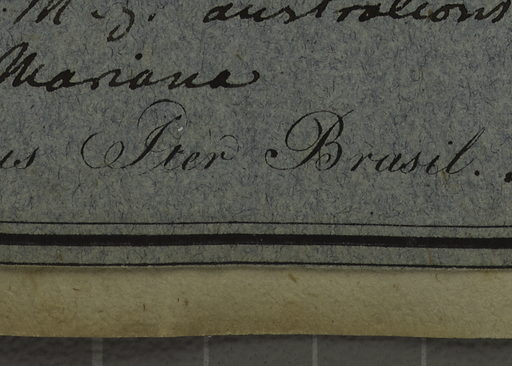 M. g. australions
Mariana
us Iter Brasil.